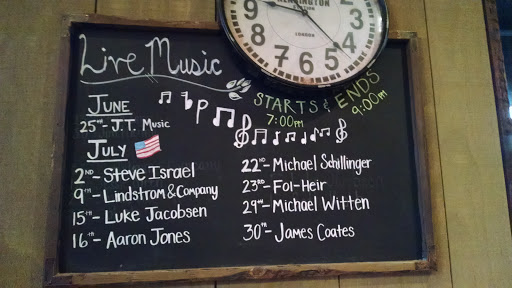 KENSINGTON
STATION
LONDON
Live Music
STARTS & ENDS
7:00PM 9:00PM
JUNE
25TH- J.T. Music
JULY
2ND- Steve Israel
9TH- Lindstrom & Company
15TH- Luke Jacobsen
16TH- Aaron Jones
22ND- Michael Schillinger
23RD- Foi-Heir
29TH- Michael Witten
30TH- James Coates